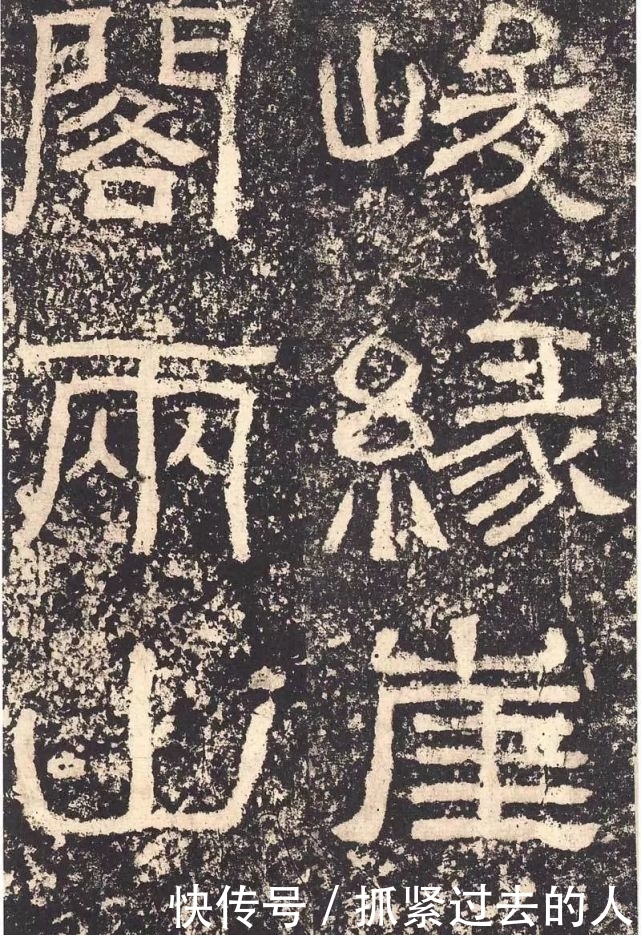 峻緣崖
閣兩山
快传号 / 抓紧过去的人